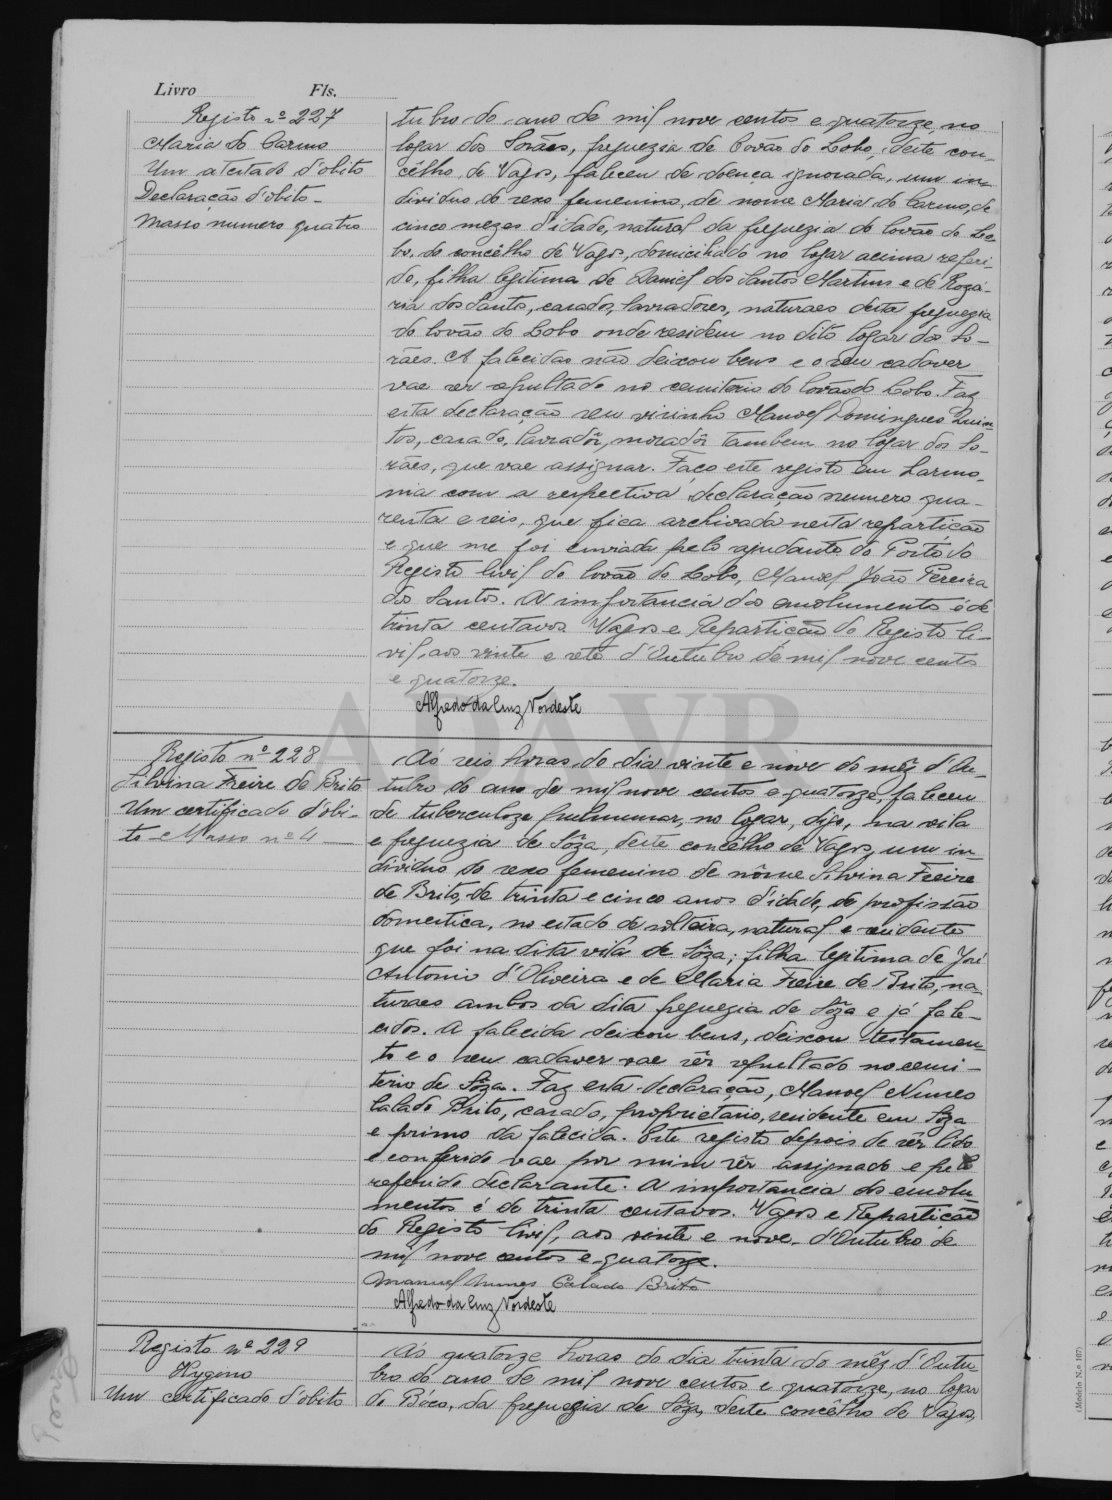 Livro Fls.
Registo nº 227
Maria do Carmo
Um atestado d'obito
Declaração d'obito -
Masso numero quatro
tubro do ano de mil nove centos e quatorze, no
logar dos Sorães, freguezia de Covão do Lobo, deste con-
cêlho de Vagos, faleceu de doença ignorada, um in-
dividuo do sexo femenino, de nome Maria do Carmo, de
cinco mezes d'idade, natural da freguezia do Covão do Lo-
bo, do concêlho de Vagos, domiciliada no logar acima referi-
do, filha legitima de Daniel dos Santos Martins e de Roza-
ria dos Santos, casados, lavradores, naturaes desta freguezia
do Covão do Lobo onde residem no dito logar dos So-
rães. A falecida não deixou bens e o seu cadaver
vae ser sepultado no cemiterio do Covão do Lobo. Faz
esta declaração seu visinho Manoel Domingues Quin-
tos, casado, lavradôr, moradôr tambem no logar dos So-
rães, que vae assignar. Faço este registo em harmo-
nia com a respectiva declaração numero qua-
renta e seis, que fica archivada nesta repartição
e que me foi enviada pelo ajudante do Posto do
Registo Civil do Covão do Lobo, Manoel João Pereira
dos Santos. A importancia dos emolumentos é de
trinta centavos. Vagos e Repartição do Registo Ci-
vil, aos vinte e sete d'Outubro de mil nove centos
e quatorze.
Alfredo da Cruz Nordeste
Registo nº 228
Silvina Freire de Brito
Um certificado d'obi-
to - Masso nº 4
Ás seis horas do dia vinte e nove do mêz d'Ou-
tubro do ano de mil nove centos e quatorze, faleceu
de tuberculoze pulmunar, no logar, digo, na vila
e freguezia de Sôza, deste concêlho de Vagos, um in-
dividuo do sexo femenino de nôme Silvina Freire
de Brito, de trinta e cinco anos d'idade, de profissão
domestica, no estado de solteira, natural e residente
que foi na dita vila de Sôza; filha legitima de José
Antonio d'Oliveira e de Maria Freire de Brito, na-
turaes ambos da dita freguezia de Sôza e já fale-
cidos. A falecida deixou bens, deixou testamen-
to e o seu cadaver vae sêr sepultado no cemi-
terio de Sôza. Faz esta declaração, Manoel Nunes
Calado Brito, casado, proprietario, residente em Sôza
e primo da falecida. Este registo depois de sêr lido
e conferido vae por mim sêr assignado e pelo
referido declarante. A importancia dos emolu-
mentos é de trinta centavos. Vagos e Repartição
do Registo Civil, aos vinte e nove d'Outubro de
mil nove centos e quatorze.
Manuel Nunes Calado Brito
Alfredo da Cruz Nordeste
Registo nº 229
Hygino
Um certificado d'obito
Ás quatorze horas do dia trinta do mêz d'Outu-
bro do ano de mil nove centos e quatorze, no logar
do Bôco, da freguezia de Sôza, deste concêlho de Vagos,
ADAVR
(Modelo N.º 107)